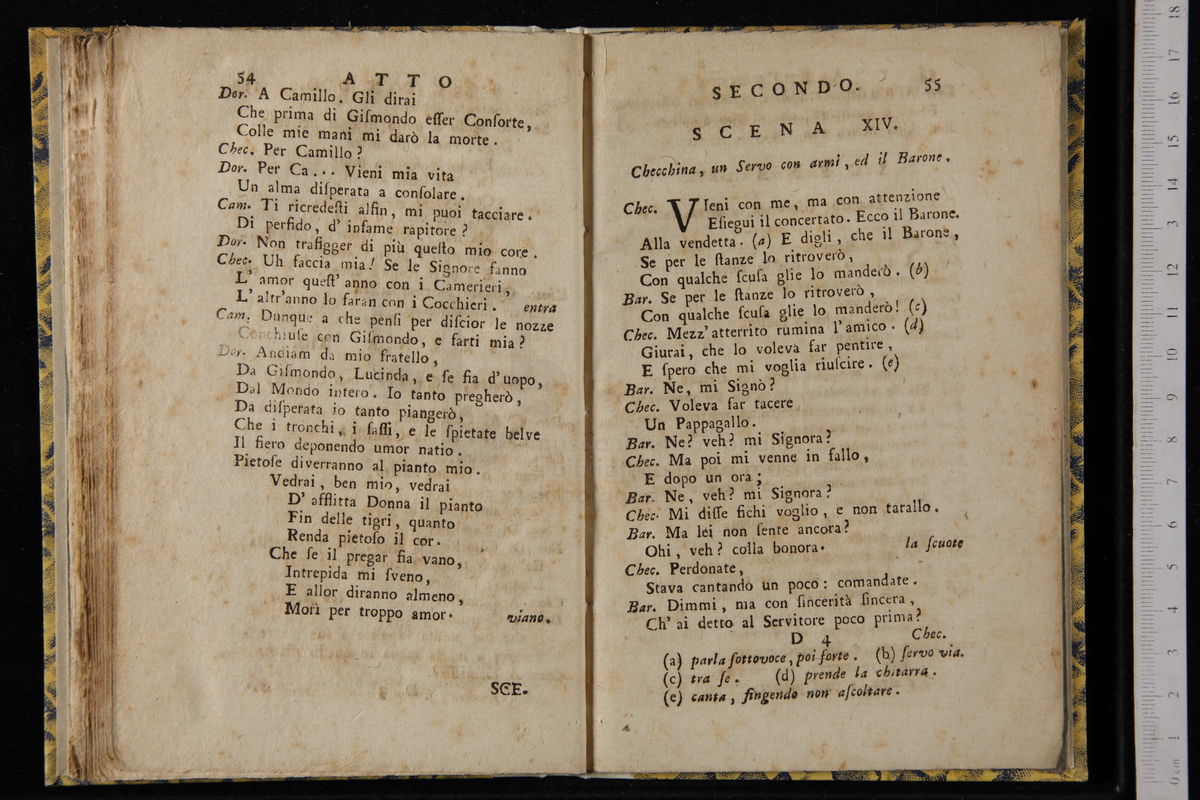 54 ATTO
Dor. A Camillo. Gli dirai
Che prima di Giſmondo eſſer Conſorte,
Colle mie mani mi darò la morte.
Chec. Per Camillo?
Dor. Per Ca... Vieni mia vita
Un alma diſperata a conſolare.
Cam. Ti ricredeſti alfin, mi puoi tacciare.
Di perfido, d' infame rapitore?
Dor. Non trafigger di più queſto mio core.
Chec. Uh faccia mia! Se le Signore fanno
L' amor queſt' anno con i Camerieri,
L' altr'anno lo faran con i Cocchieri. entra
Cam. Dunque a che penſi per diſcior le nozze
Conchiuſe con Giſmondo, e farti mia?
Dor. Andiam da mio fratello,
Da Giſmondo, Lucinda, e ſe fia d'uopo,
Dal Mondo intero. Io tanto pregherò,
Da diſperata io tanto piangerò,
Che i tronchi, i ſaſſi, e le ſpietate belve
Il fiero deponendo umor natio.
Pietoſe diverranno al pianto mio.
Vedrai, ben mio, vedrai
D' afflitta Donna il pianto
Fin delle tigri, quanto
Renda pietoſo il cor.
Che ſe il pregar fia vano,
Intrepida mi ſveno,
E allor diranno almeno,
Morì per troppo amor. viano.
SCE.
SECONDO. 55
SCENA XIV.
Checchina, un Servo con armi, ed il Barone.
Chec. VIeni con me, ma con attenzione
Eſiegui il concertato. Ecco il Barone.
Alla vendetta. (a) E digli, che il Barone,
Se per le ſtanze lo ritroverò,
Con qualche ſcuſa glie lo manderò. (b)
Bar. Se per le ſtanze lo ritroverò,
Con qualche ſcuſa glie lo manderò! (c)
Chec. Mezz'atterrito rumina l'amico. (d)
Giurai, che lo voleva far pentire,
E ſpero che mi voglia riuſcire. (e)
Bar. Ne, mi Signò?
Chec. Voleva far tacere
Un Pappagallo.
Bar. Ne? veh? mi Signora?
Chec. Ma poi mi venne in fallo,
E dopo un ora;
Bar. Ne, veh? mi Signora?
Chec. Mi diſſe fichi voglio, e non tarallo.
Bar. Ma lei non ſente ancora?
Ohi, veh? colla bonora. la ſcuote
Chec. Perdonate,
Stava cantando un poco: comandate.
Bar. Dimmi, ma con ſincerità ſincera,
Ch' ai detto al Servitore poco prima?
D 4 Chec.
(a) parla ſottovoce, poi forte. (b) ſervo via.
(c) tra ſe. (d) prende la chitarra.
(e) canta, fingendo non aſcoltare.
0 cm 1 2 3 4 5 6 7 8 9 10 11 12 13 14 15 16 17 18